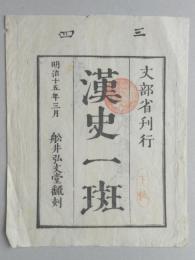 三
四
文部省刊行
漢史一班
明治十五年三月
舩井弘文堂飜刻